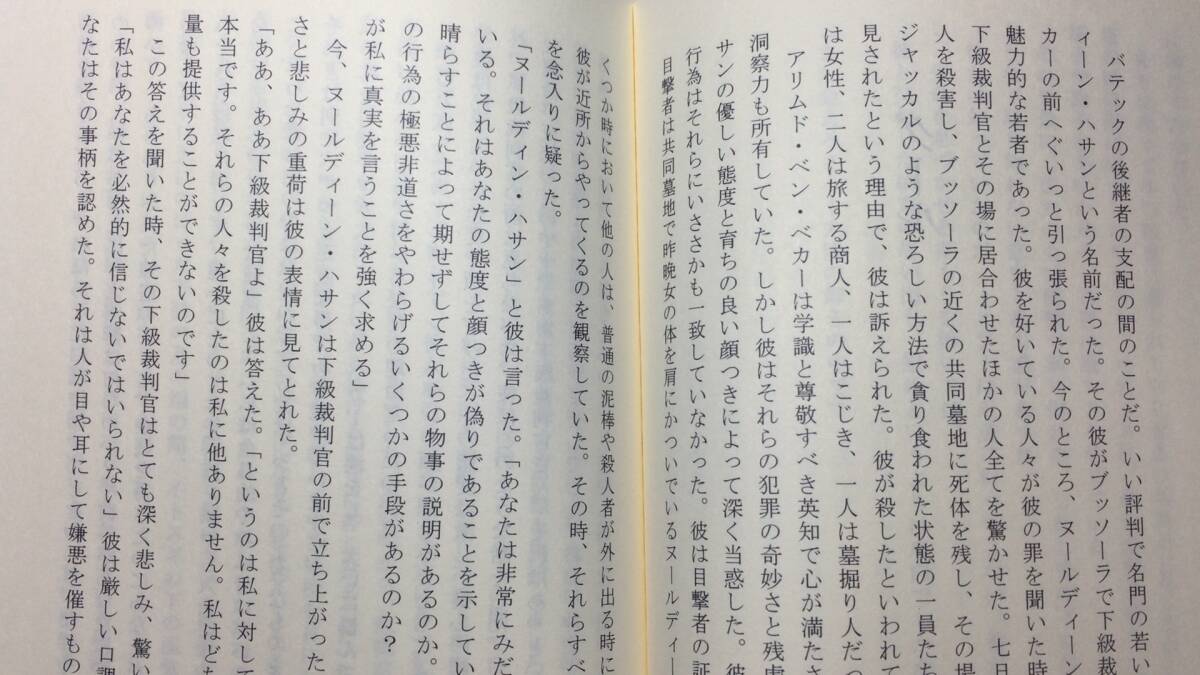 バテックの後継者の支配の間のことだ。いい評判で名門の若い
ィーン・ハサンという名前だった。その彼がブッソーラで下級裁
カーの前へぐいっと引っ張られた。今のところ、ヌールディーン
魅力的な若者であった。彼を好いている人々が彼の罪を聞いた時
下級裁判官とその場に居合わせたほかの人全てを驚かせた。七日
人を殺害し、ブッソーラの近くの共同墓地に死体を残し、その場
ジャッカルのような恐ろしい方法で貪り食われた状態の一員たち
見されたという理由で、彼は訴えられた。彼が殺したといわれて
は女性、二人は旅する商人、一人はこじき、一人は墓掘り人だっ
アリムド・ベン・ベカーは学識と尊敬すべき英知で心が満たさ
洞察力も所有していた。しかし彼はそれらの犯罪の奇妙さと残虐
サンの優しい態度と育ちの良い顔つきによって深く当惑した。彼
行為はそれらにいささかも一致していなかった。彼は目撃者の証
目撃者は共同墓地で昨晩女の体を肩にかついでいるヌールディー
くつか時において他の人は、普通の泥棒や殺人者が外に出る時に
彼が近所からやってくるのを観察していた。その時、それらすべ
を念入りに疑った。
「ヌールディン・ハサン」と彼は言った。「あなたは非常にみだ
いる。それはあなたの態度と顔つきが偽りであることを示してい
晴らすことによって期せずしてそれらの物事の説明があるのか。
の行為の極悪非道さをやわらげるいくつかの手段があるのか？
が私に真実を言うことを強く求める」
今、ヌールディーン・ハサンは下級裁判官の前で立ち上がった
さと悲しみの重荷は彼の表情に見てとれた。
「ああ、ああ下級裁判官よ」彼は答えた。「というのは私に対して
本当です。それらの人々を殺したのは私に他ありません。私はどち
量も提供することができないのです」
この答えを聞いた時、その下級裁判官はとても深く悲しみ、驚い
「私はあなたを必然的に信じないではいられない」彼は厳しい口調
なたはその事柄を認めた。それは人が目や耳にして嫌悪を催すもの